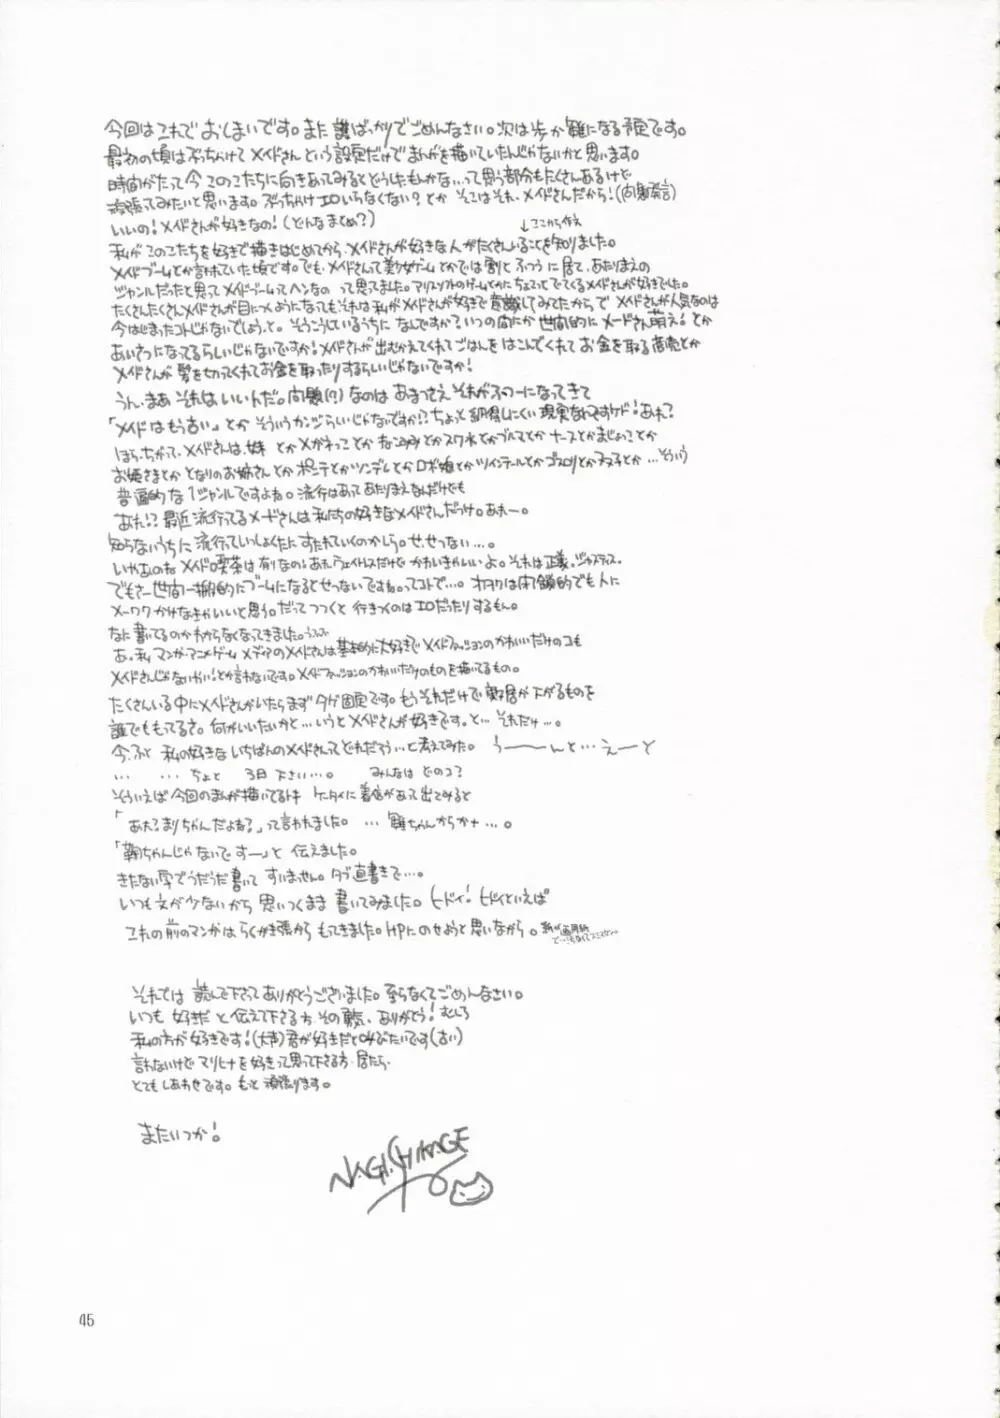 今回はこれでおしまいです。また誰ばっかりでごめんなさい。次は歩か雛になる予定です。
最初の頃はぶっちゃけてメイドさんという設定だけでまんがを描いていたんじゃないかと思います。
時間がたって今このこたちに向きあってみるとどうしたもんかな…って思う部分もたくさんあるけど
頑張ってみたいと思います。ぶっちゃけエロいらなくない?とか そこはそれ、メイドさんだから!(問題発言)
いいの!メイドさんが好きなの!(どんなまとめ?)
↓ここから作文
私がこのこたちを好きで描きはじめてから、メイドさんが好きな人がたくさんいることを知りました。
メイドブームとか言われていた頃です。でも、メイドさんて美少女ゲームとかでは割とふつうに居て、あたりまえの
ジャンルだったと思ってメイドブームってヘンなの って思ってました。アリスソフトのゲームとかにちょこっとでてくるメイドさんが好きでした。
たくさんたくさんメイドさんが目につくようになっても、それは私がメイドさんが好きで意識してみてたからで メイドさんが人気なのは
今はじまったコトじゃないでしょう、と。そうこうしているうちになんですか?いつの間にか世間的にメードさん萌え!とか
あいさつになってるらしいじゃないですか!メイドさんが出むかえてくれてごはんをはこんでくれてお金を取る商売とか
メイドさんが髪を切ってくれてお金を取ったりするらしいじゃないですか!
うん、まあそれはいいんだ。問題(?)なのはあまつさえそれがふつーになってきて
「メイドはもう古い。」とかそういうカンジらしいじゃないですか!?ちょっと納得しにくい現実なんですケド!あれ?
ほら、ちがって、メイドさんは、妹 とかメガネっことかネコミミとかスク水とかブルマとかナースとかまじょっことか
お姫さまとか となりのお姉さんとか ポニテとかツンデレとかロボ娘とかツインテールとかゴスロリとかフタ子とか…そういう
普遍的な1ジャンルですよね。流行はあってあたりまえなんだけども
あれ!?最近流行ってるメードさんは私たちの好きなメイドさんだっけ。あれー。
知らないうちに流行っていっしょくたにすたれていくのかしら。せ、せつない…。
いやあのね メイド喫茶は有りなの!あれウェイトレスだけでかわいきゃいいよ。それは正義。ジャスティス。
でもさー世間一般的にブームになるとせつないですね。ってコトで…。オタクは閉鎖的でも人に
メーワクかけなきゃいいと思う。だってつづくと行きつくのはエロだったりするもん。
なに書いてるのかわからなくなってきました。うふふ
あ。私マンガ・アニメゲームメディアのメイドさんは基本的に大好きでメイドファッションのかわいいだけのコも
メイドさんじゃないやい!とか言わないです。メイドファッションのかわいいだけのものを描いてるもの。
たくさんいる中にメイドさんがいたらまずタゲ固定です。もうそれだけで敷居が下がるものを
誰でももってるさ。何がいいたいかと…いうとメイドさんが好きです。と…それだけ…。
今、ふと 私の好きないちばんのメイドさんってどれだろう…と考えてみた。 うーーーんと…えーと
… … ちょと 3日下さい…。 みんなはどのコ?
そういえば今回のまんが描いてるトキ ケータイに着信があって出てみると
「あれ?まりちゃんだよね?」って言われました。… 雛ちゃんからかナ…。
「鞠ちゃんじゃないですー」と伝えました。
きたない字でうだうだ書いて すいません。タブ直書きで…。
いつも文が少ないから思いつくまま 書いてみました。ヒドイ!ヒドイといえば
これの前のマンガは らくがき帳からもってきました。HPにのせようと思いながら。
それでは 読んで下さってありがとうございました。至らなくてごめんなさい。
いつも 好きだ と伝えて下さる方、その勇気、ありがとう!むしろ
私の方が好きです!(大声)君が好きだと叫びたいです(古い)
言わないけどマリヒナを好きって思って下さる方、居たら
とてもしあわせです。もっと頑張ります。
またいつか!
NAGI.CHIKAGE
45